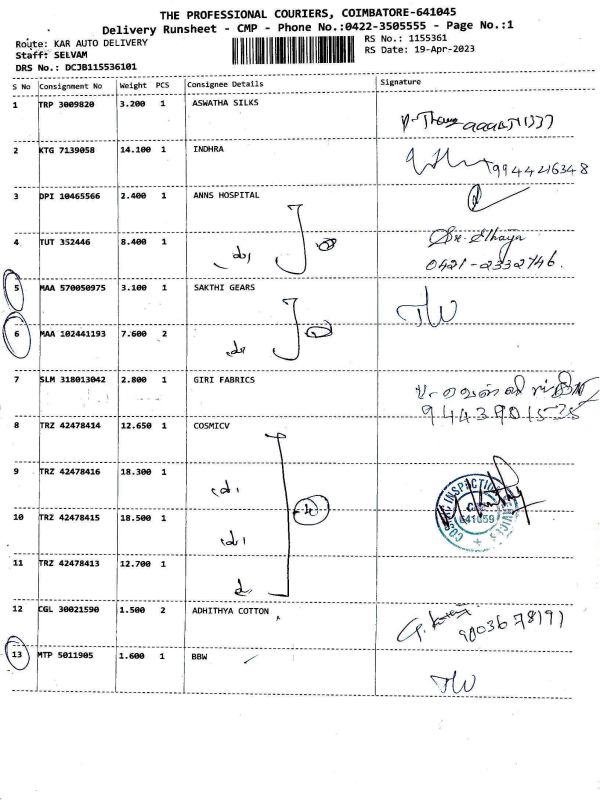 THE PROFESSIONAL COURIERS, COIMBATORE-641045
Delivery Runsheet - CMP - Phone No.:0422-3505555 - Page No.:1
Route: KAR AUTO DELIVERY
RS No.: 1155361
Staff: SELVAM
RS Date: 19-Apr-2023
DRS No.: DCJB115536101
S No Consignment No Weight PCS Consignee Details Signature
1 TRP 3009820 3.200 1 ASWATHA SILKS
2 KTG 7139058 14.100 1 INDHRA
9944216348
3 DPI 10465566 2.400 1 ANNS HOSPITAL
4 TUT 352446 8.400 1
0421-2332746.
5 MAA 570050975 3.100 1 SAKTHI GEARS
6 MAA 102441193 7.600 2
7 SLM 318013042 2.800 1 GIRI FABRICS
8 TRZ 42478414 12.650 1 COSMICV
9 TRZ 42478416 18.300 1
10 TRZ 42478415 18.500 1
641059
11 TRZ 42478413 12.700 1
12 CGL 30021590 1.500 2 ADHITHYA COTTON
9003678191
13 MTP 5011905 1.600 1 BBW